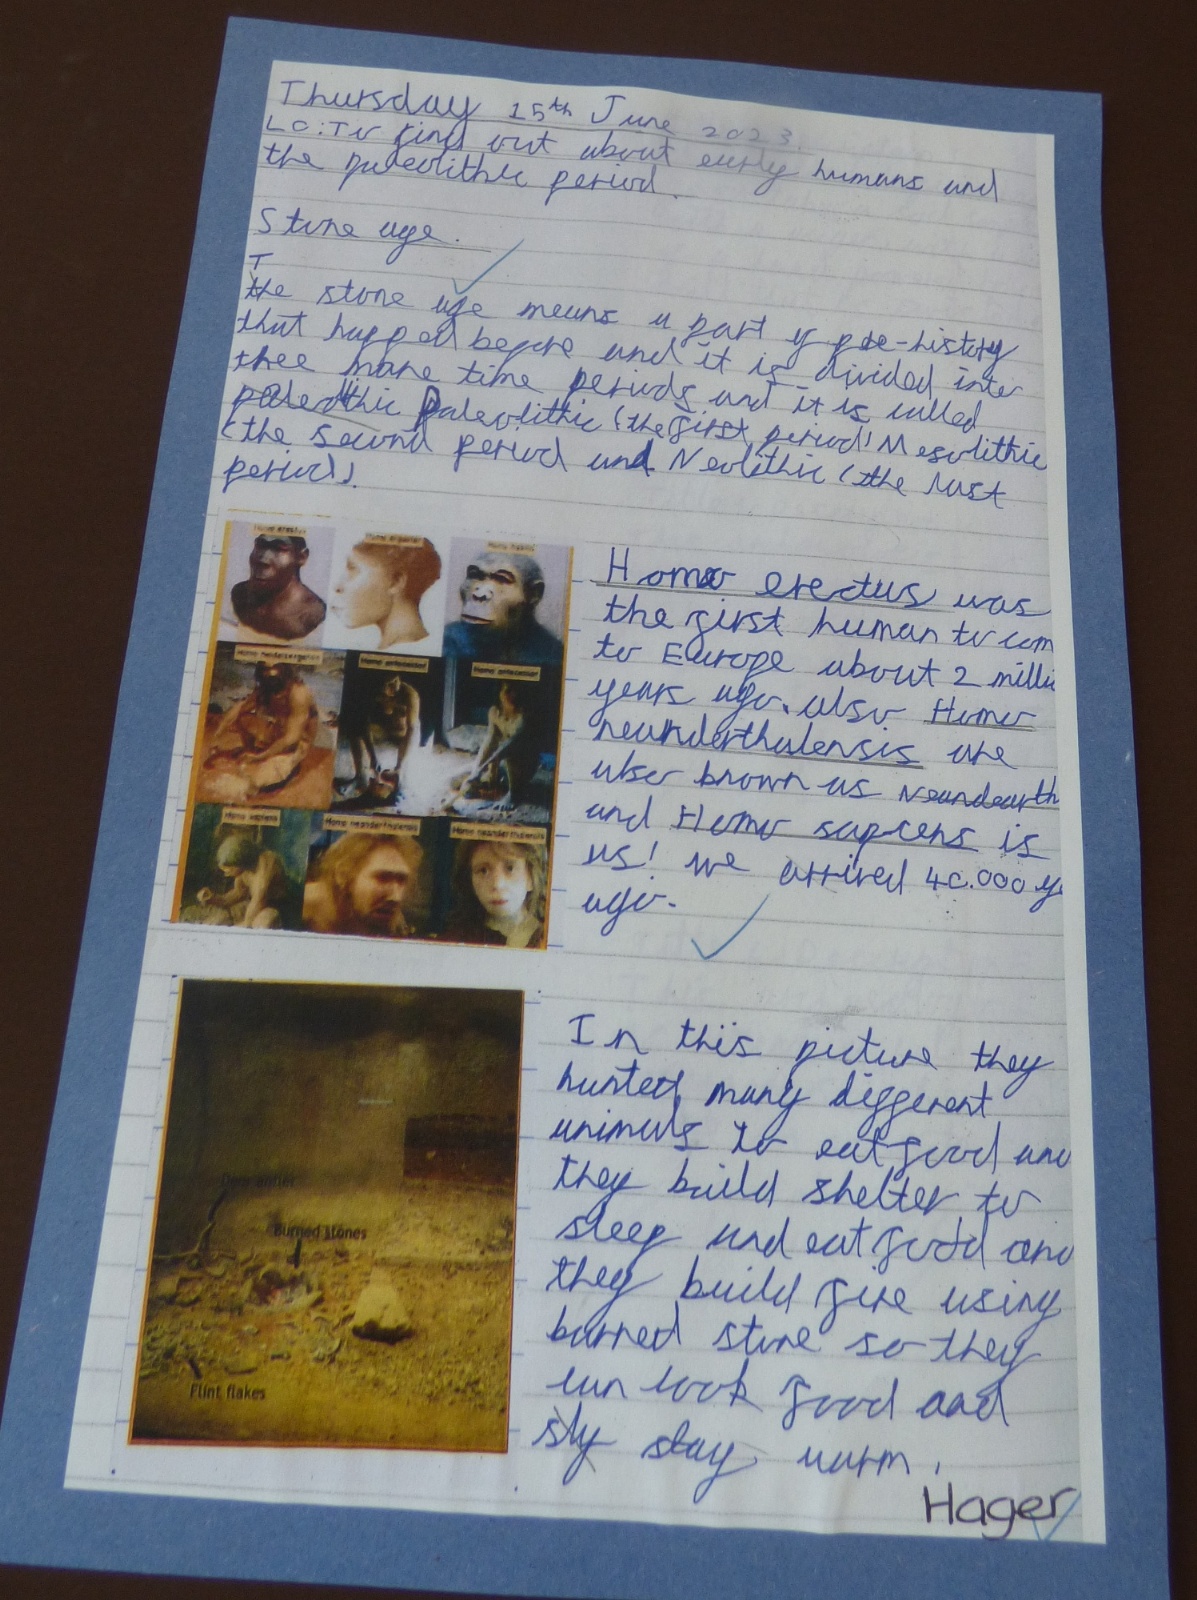 Thursday 15th June 2023.
LO: To find out about early humans and
the paleolithic period.
Stone age.
T
the stone age means a part of pre-history
that happed before and it is divided into
thee more time periods and it is called
Paleolithic (the first period) Mesolithic
(the second period and Neolithic (the last
period).
Homo erectus
Homo ergaster
Homo habilis
Homo heidelbergensis
Homo antecessor
Homo antecessor
Homo sapiens
Homo neanderthalensis
Homo neanderthalensis
Homo erectus was
the first human to com
to Europe about 2 millio
years ago. also Homo
neanderthalensis are
also known as Neandearth
and Homo sapiens is
us! we arrived 40.000 ye
ago.
Deer antler
Burned stones
Flint flakes
In this picture they
hunted many different
animals to eat food and
they build shelter to
sleep and eat food and
they build fire using
burned stone so they
can cook food and
stay warm.
Hager